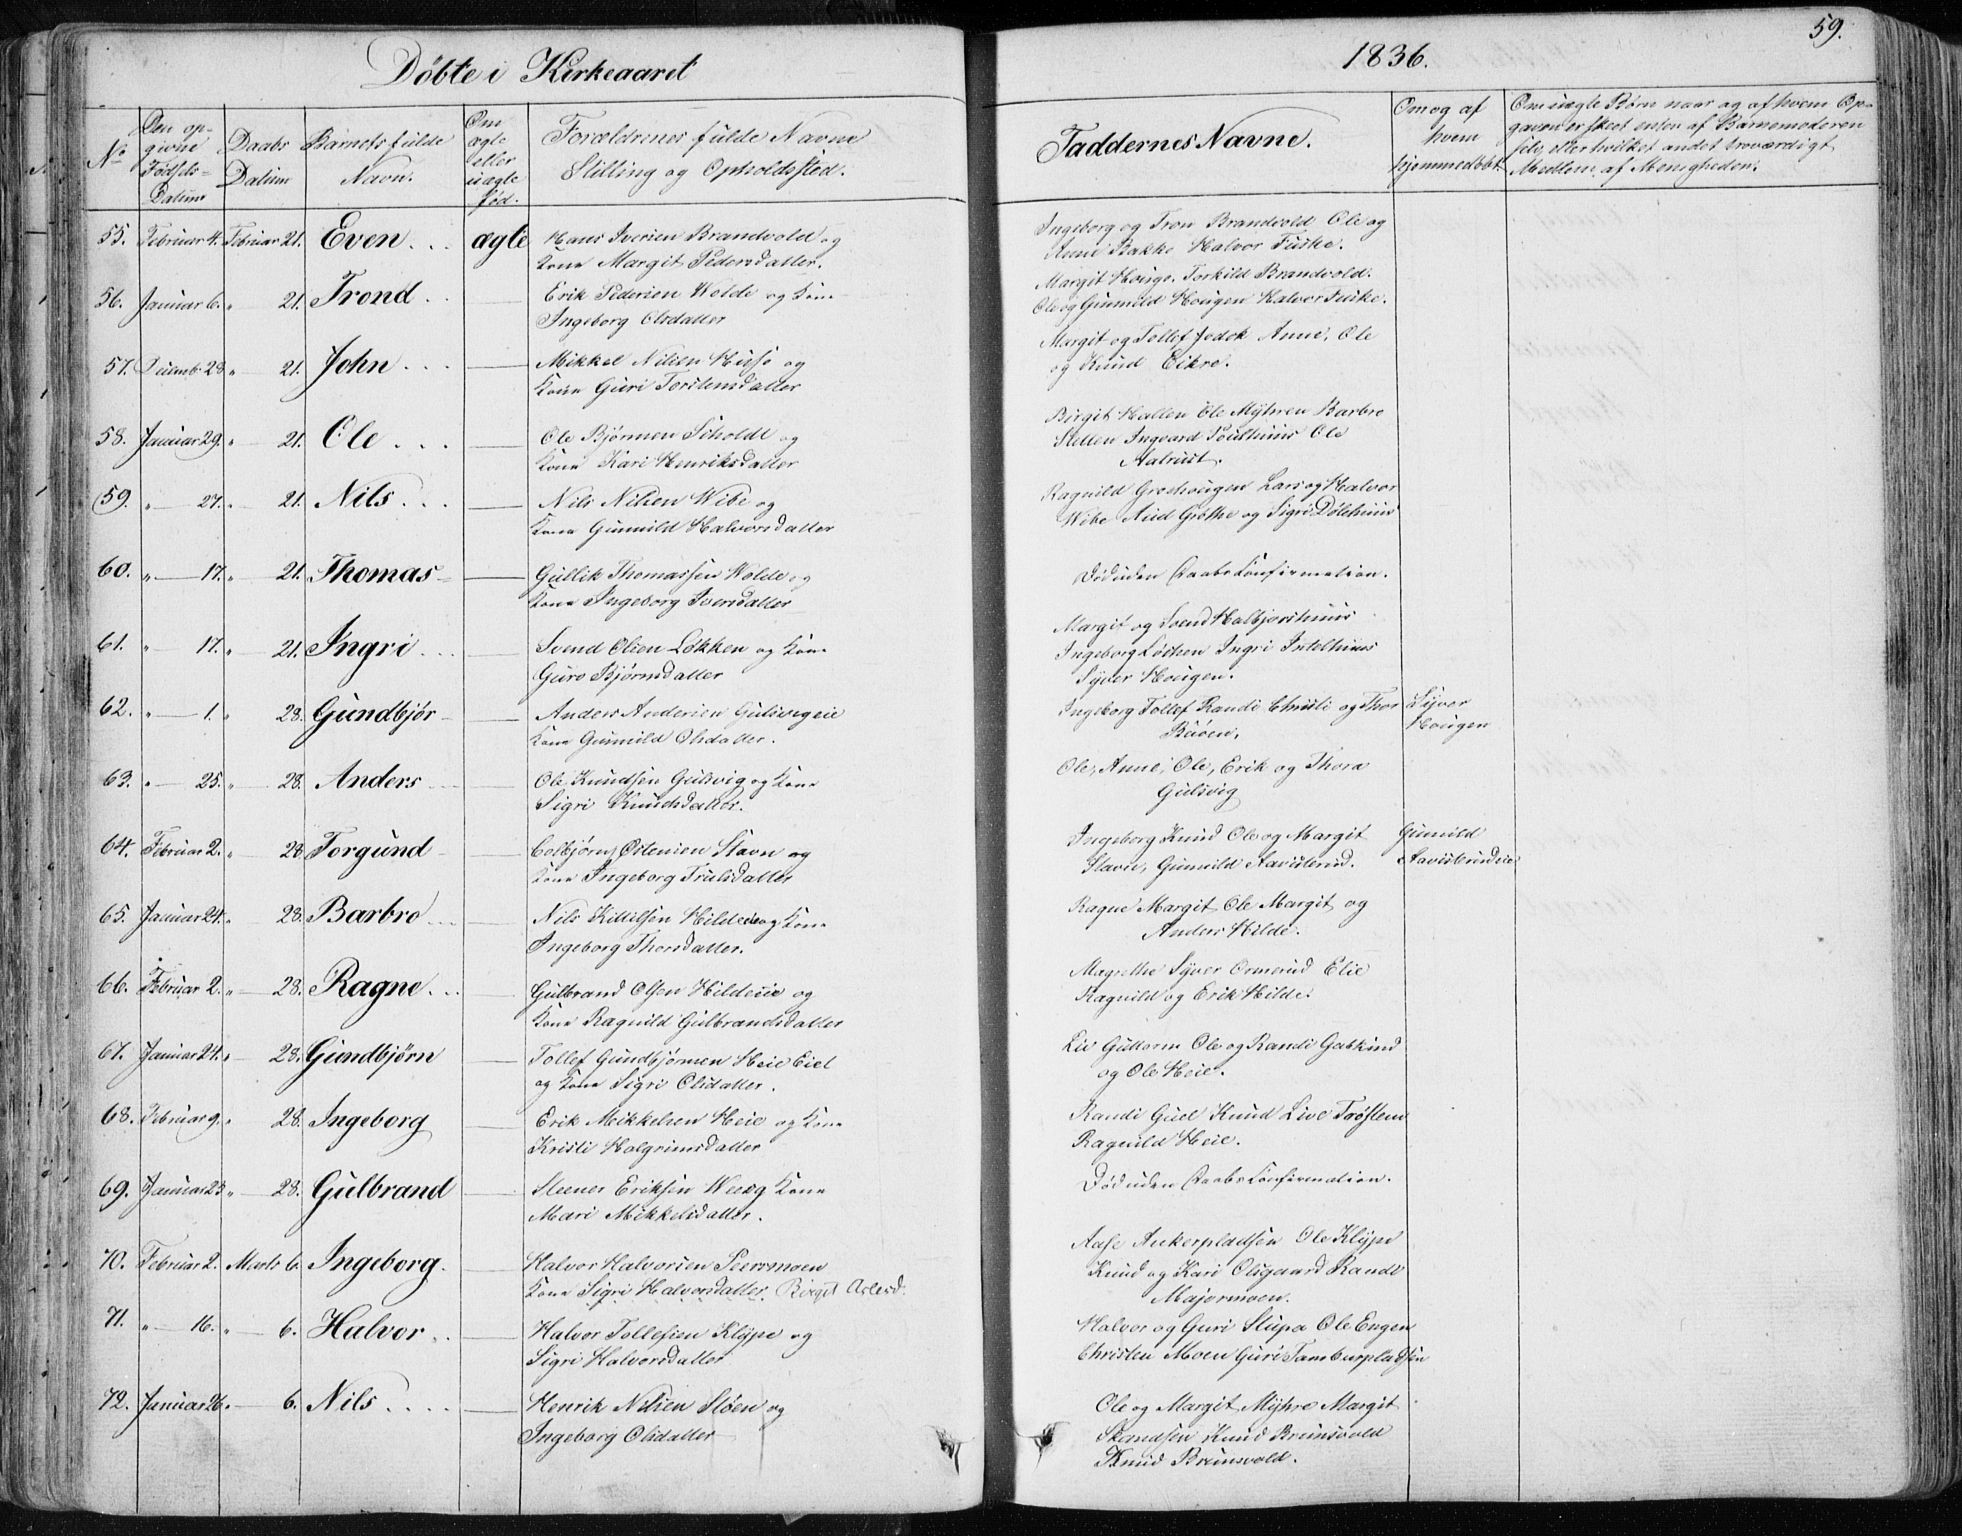 Døbte i Kirkeaaret
1836.
59.
No
Den op-
givne
Fødsels-
Datum
Daabs
Datum
Barnets fulde
Navn.
Om
ægte
eller
uægte
fød.
Forældrenes fulde Navne
Stilling og Opholdssted.
Faddernes Navne.
Om og af
hvem
hjemmedøbt
Om uægte Børn naar og af hvem Op-
gaven er skeet enten af Barnemoderen
selv, eller hvilket andet troværdigt
Medlem af Menigheden.
55. Februar 4. Februar 21. Even... ægte Hans Iversen Brandvold og
Kone Margit Pedersdatter.
Ingeborg og Tron Brandvold Ole og
Anne Bakke Halvor Fuske.
56. Januar 6. " 21. Trond.. Erik Pedersen Wolde og Kone
Ingeborg Olsdatter
Margit Houge. Torkild Brandvold.
Ole og Gunnild Hougen Halvor Fuske.
57. Decemb. 28 " 21. John... Mikkel Nilsen og
Kone Guri Torstensdatter
Margit og Tollef Anne, Ole
og Knud Eikre.
58. Januar 29. " 21. Ole... Ole Bjørnsen og
Kone Kari Henriksdatter
Birgit Hallen Ole Myhren Barbro
Stellen Ingvard Ole
Aalrust.
59. " 27. " 21. Nils... Nils Nilsen Wibe og
Kone Gunnild Halvorsdatter
Ragnild Lars og Halvor
Wibe Aud Grøthe og Sigri
60. " 17. " 21. Thomas Gullik Thomassen Wolde og
Kone Ingeborg Iversdatter
Død uden Daabs Confirmation.
61. " 17. " 21. Ingri... Svend Olsen Løkken og Kone
Guro Bjørnsdatter
Margit og Svend
Ingeborg Løkken Ingri
Syver Hougen.
62. " 1. " 28. Gundbjør Anders Andersen Gulsvigeie
Kone Gunnild Olsdatter.
Ingeborg Tollef Randi Christi og Thor
Buøen.
Syver
Hougen
63. " 25. " 28. Anders Ole Knudsen Gulsvig og Kone
Sigri Knudsdatter.
Ole, Anne, Ole, Erik og Thora
Gulsvig
64. Februar 2. " 28 Torgund Colbjørn Østensen Stavn og
Kone Ingeborg Trulsdatter
Ingeborg Knud Ole og Margit
Gunnild Aavesterud.
Gunnild
65. Januar 24. " 28. Barbro Nils Kittilsen Hildeeie og Kone
Ingeborg Thorsdatter.
Ragne Margit Ole Margit og
Anders Hilde.
66. Februar 2. " 28. Ragne... Gulbrand Olsen Hildeeie og
Kone Ragnild Gulbrandsdatter
Magrethe Syver Ormerud Elie
Ragnild og Erik Hilde.
67. Januar 24. " 28. Gundbjørn Tollef Gundbjørnsen Heie Eiet
og Kone Sigri Olsdatter.
Liv Guttorm Ole og Randi
og Ole Heie.
68. Februar 9. " 28. Ingeborg Erik Mikkelsen Heie og Kone
Kristi Halgrimsdatter
Randi Knud Live Trøstem
Ragnild Heie.
69. Januar 23 " 28. Gulbrand Steener Eriksen Kone
Mari Mikkelsdatter.
Død uden Daabs Confirmation.
70. Februar 2. Marts 6. Ingeborg. Halvor Halvorsen
Kone Sigri Halvorsdatter. Birgit
Aase Ankerpladsen Ole Klype
Knud og Kari Olsgaard Randi
Majormoen.
71. " 16. " 6. Halvor.. Halvor Tollefsen Klype og
Sigri Halvorsdatter
Halvor og Guri Ole Engen
Christen Moen Guri Tamburpladsen
72. Januar 26. 6. Nils.... Henrik Nilsen Sløen og
Ingeborg Olsdatter
Ole og Margit Myhre Margit
Knud Brunsvold
Knud Brunsvold.